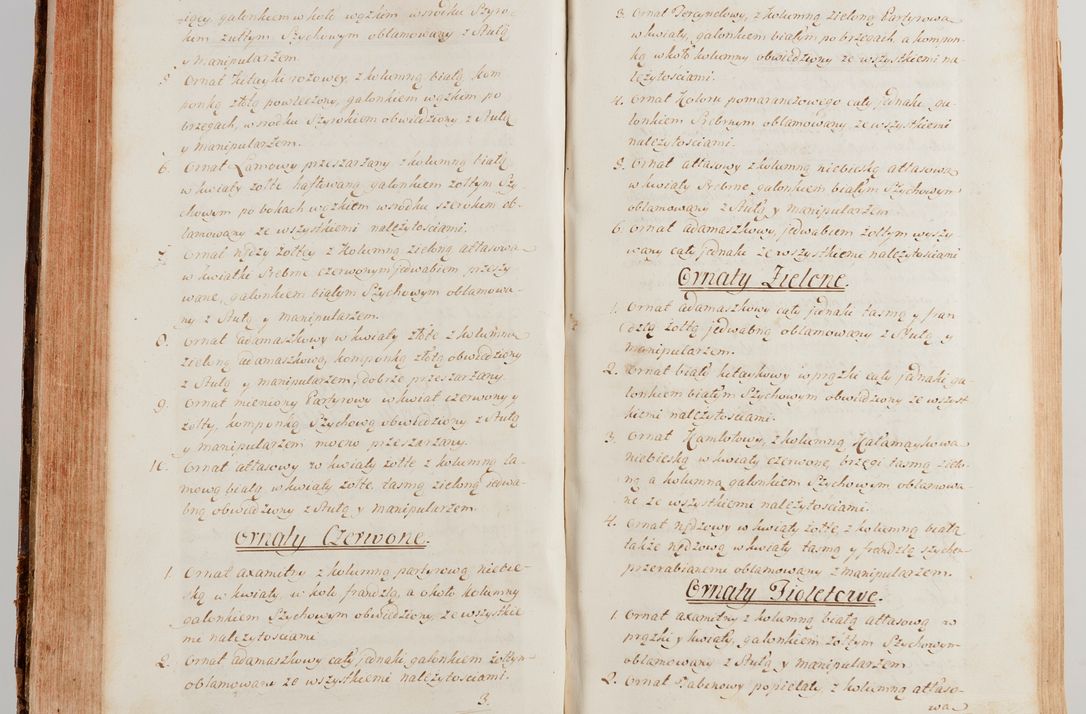 galonkiem w kole wązkim wsrodku Szyro-
kim żułtym Szychowym oblamowany z Stułą
y manipularzem.
5. Ornat kitayki rożowey, z kolumną białą, kom
ponką złotą powleczony, galonkiem wązkim po
brzegach, wsrodku Szyrokiem obwiedziony z Stułą
y manipularzem.
6. Ornat Lamowy przeszarzany z kolumną białą
w kwiaty żołte haftowaną, galonkiem żołtym Szy-
chowym po bokach wązkiem wsrodku szerokim ob-
lamowany ze wszystkiemi należytościami.
7. Ornat rydzy żołtey z kolumną zieloną atłasową
w kwiatki Srebrne czerwonym jedwabiem przeszy
wane, galonkiem białym Szychowym oblamowa-
ny z Stułą y manipularzem.
8. Ornat adamaszkowy w kwiaty złote z kolumną
zieloną adamaszkową, komponką złotą obwiedziony
z Stułą y manipularzem, dobrze przeszarzany.
9. Ornat mieniony Partyrowy w kwiat czerwony y
żołty, komponką Szychową obwiedziony z Stułą
y manipularzem mocno przeszarzany.
10. Ornat atłasowy w kwiaty żołte z kolumną la-
mową białą w kwiaty żołte, tasmą zieloną jedwa-
bną obwiedziony z Stułą y manipularzem.
Ornaty Czerwone.
1. Ornat axamitny z kolumną partyrową niebie-
ską w kwiaty, w kole frandzlą, a około kolumny
galonkiem Szychowym obwiedziony, ze wszystkie-
mi należytościami
2. Ornat adamaszkowy cały jednaki, galonkiem żołtym
oblamowany ze wszystkiemi należytościami.
3.
3. Ornat Tercynelowy, z kolumną zieloną Partyrową
w kwiaty, galonkiem białym po brzegach, a kompon-
ką w koło kolumny obwiedziony ze wszystkiemi na-
leżytościami.
4. Ornat Koloru pomaranczowego cały jednaki ga-
lonkiem Srebrnym oblamowany, ze wszystkiemi
należytościami.
5. Ornat atłasowy z kolumną niebieską atłasową
w kwiaty Srebrne, galonkiem białym Szychowym
oblamowany z Stułą y manipularzem
6. Ornat adamaszkowy, jedwabiem żołtym wyszy
wany cały jednaki ze wszystkiemi należytościami
Ornaty Zielone.
1. Ornat adamaszkowy cały jednaki tasmą y fran
dzlą żołtą jedwabną oblamowany z Stułą y
manipularzem.
2. Ornat biały kitaykowy w prążki cały jednaki, ga-
lonkiem białym Szychowym obwiedziony ze wszyst
kiemi należytościami.
3. Ornat Kamlotowy, z kolumną Kałamaykową
niebieską w kwiaty czerwone, brzegi tasmą zielo-
ną a kolumną galonkiem Szychowym oblamowa-
ne ze wszystkiemi należytościami.
4. Ornat rydzowy w kwiaty żołte, z kolumną białą
także rydzową w kwiaty tasmą y frandzlą szychem
przerabianemi oblamowany z manipularzem.
Ornaty Fioletowe.
1. Ornat axamitny z kolumną białą atłasową w
prążki y kwiaty, galonkiem żołtym Szychowym
oblamowany z Stułą y manipularzem
2. Ornat Tabinowy popielaty, z kolumną atłaso-
wą